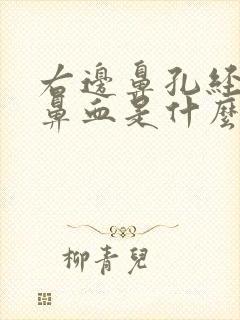 右邊鼻孔経
鼻血是什麼
柳青兒